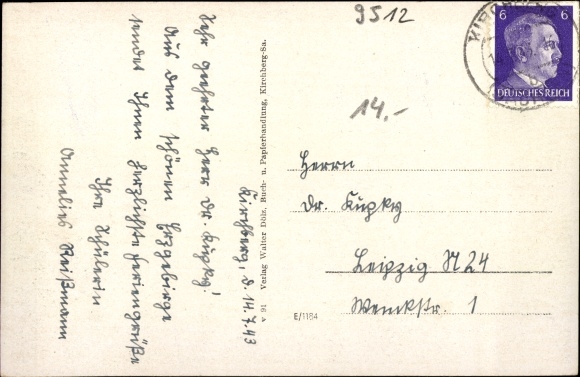 9512
6 6
DEUTSCHES REICH
14.-
Kirchberg, d. 14.7.43
Sehr geehrter Herr Dr. Kupky!
Aus dem schönen Erzgebirge
sendet Ihnen herzlichste Feriengrüße
Ihre Schülerin
Annelies Reißmann
V 91 Verlag Walter Dölz, Buch- u. Papierhandlung, Kirchberg-Sa.
E/1184
Herrn
Dr. Kupky
Leipzig N 24
Wenckstr. 1